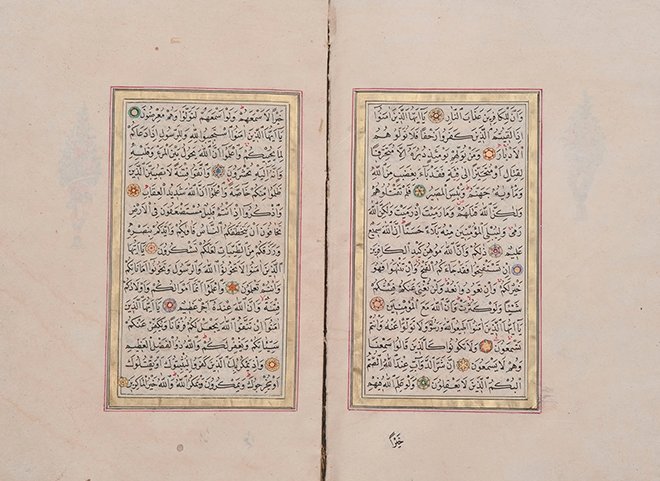 وَاَنَّ لِلْكَافِرِينَ عَذَابَ النَّارِ يَا اَيُّهَا الَّذِينَ اٰمَنُوا
اِذَا لَقِيتُمُ الَّذِينَ كَفَرُوا زَحْفًا فَلَا تُوَلُّوهُمُ
الْاَدْبَارَ وَمَنْ يُوَلِّهِمْ يَوْمَئِذٍ دُبُرَهُ اِلَّا مُتَحَرِّفًا
لِقِتَالٍ اَوْ مُتَحَيِّزًا اِلٰى فِئَةٍ فَقَدْ بَاءَ بِغَضَبٍ مِنَ اللّٰهِ
وَمَأْوٰيهُ جَهَنَّمُ وَبِئْسَ الْمَصِيرُ فَلَمْ تَقْتُلُوهُمْ
وَلٰكِنَّ اللّٰهَ قَتَلَهُمْ وَمَا رَمَيْتَ اِذْ رَمَيْتَ وَلٰكِنَّ اللّٰهَ
رَمٰى وَلِيُبْلِيَ الْمُؤْمِنِينَ مِنْهُ بَلَاءً حَسَنًا اِنَّ اللّٰهَ سَمِيعٌ
عَلِيمٌ ذٰلِكُمْ وَاَنَّ اللّٰهَ مُوهِنُ كَيْدِ الْكَافِرِينَ
اِنْ تَسْتَفْتِحُوا فَقَدْ جَاءَكُمُ الْفَتْحُ وَاِنْ تَنْتَهُوا فَهُوَ
خَيْرٌ لَكُمْ وَاِنْ تَعُودُوا نَعُدْ وَلَنْ تُغْنِيَ عَنْكُمْ فِئَتُكُمْ
شَيْئًا وَلَوْ كَثُرَتْ وَاَنَّ اللّٰهَ مَعَ الْمُؤْمِنِينَ
يَا اَيُّهَا الَّذِينَ اٰمَنُوا اَطِيعُوا اللّٰهَ وَرَسُولَهُ وَلَا تَوَلَّوْا عَنْهُ وَاَنْتُمْ
تَسْمَعُونَ وَلَا تَكُونُوا كَالَّذِينَ قَالُوا سَمِعْنَا
وَهُمْ لَا يَسْمَعُونَ اِنَّ شَرَّ الدَّوَابِّ عِنْدَ اللّٰهِ الصُّمُّ
الْبُكْمُ الَّذِينَ لَا يَعْقِلُونَ وَلَوْ عَلِمَ اللّٰهُ فِيهِمْ
خَيْرًا
خَيْرًا لَاَسْمَعَهُمْ وَلَوْ اَسْمَعَهُمْ لَتَوَلَّوْا وَهُمْ مُعْرِضُونَ
يَا اَيُّهَا الَّذِينَ اٰمَنُوا اسْتَجِيبُوا لِلّٰهِ وَلِلرَّسُولِ اِذَا دَعَاكُمْ
لِمَا يُحْيِيكُمْ وَاعْلَمُوا اَنَّ اللّٰهَ يَحُولُ بَيْنَ الْمَرْءِ وَقَلْبِهِ
وَاَنَّهُ اِلَيْهِ تُحْشَرُونَ وَاتَّقُوا فِتْنَةً لَا تُصِيبَنَّ الَّذِينَ
ظَلَمُوا مِنْكُمْ خَاصَّةً وَاعْلَمُوا اَنَّ اللّٰهَ شَدِيدُ الْعِقَابِ
وَاذْكُرُوا اِذْ اَنْتُمْ قَلِيلٌ مُسْتَضْعَفُونَ فِي الْاَرْضِ
تَخَافُونَ اَنْ يَتَخَطَّفَكُمُ النَّاسُ فَاٰوٰيكُمْ وَاَيَّدَكُمْ بِنَصْرِهِ
وَرَزَقَكُمْ مِنَ الطَّيِّبَاتِ لَعَلَّكُمْ تَشْكُرُونَ يَا اَيُّهَا
الَّذِينَ اٰمَنُوا لَا تَخُونُوا اللّٰهَ وَالرَّسُولَ وَتَخُونُوا اَمَانَاتِكُمْ
وَاَنْتُمْ تَعْلَمُونَ وَاعْلَمُوا اَنَّمَا اَمْوَالُكُمْ وَاَوْلَادُكُمْ
فِتْنَةٌ وَاَنَّ اللّٰهَ عِنْدَهُ اَجْرٌ عَظِيمٌ يَا اَيُّهَا الَّذِينَ
اٰمَنُوا اِنْ تَتَّقُوا اللّٰهَ يَجْعَلْ لَكُمْ فُرْقَانًا وَيُكَفِّرْ عَنْكُمْ
سَيِّئَاتِكُمْ وَيَغْفِرْ لَكُمْ وَاللّٰهُ ذُو الْفَضْلِ الْعَظِيمِ
وَاِذْ يَمْكُرُ بِكَ الَّذِينَ كَفَرُوا لِيُثْبِتُوكَ اَوْ يَقْتُلُوكَ
اَوْ يُخْرِجُوكَ وَيَمْكُرُونَ وَيَمْكُرُ اللّٰهُ وَاللّٰهُ خَيْرُ الْمَاكِرِينَ